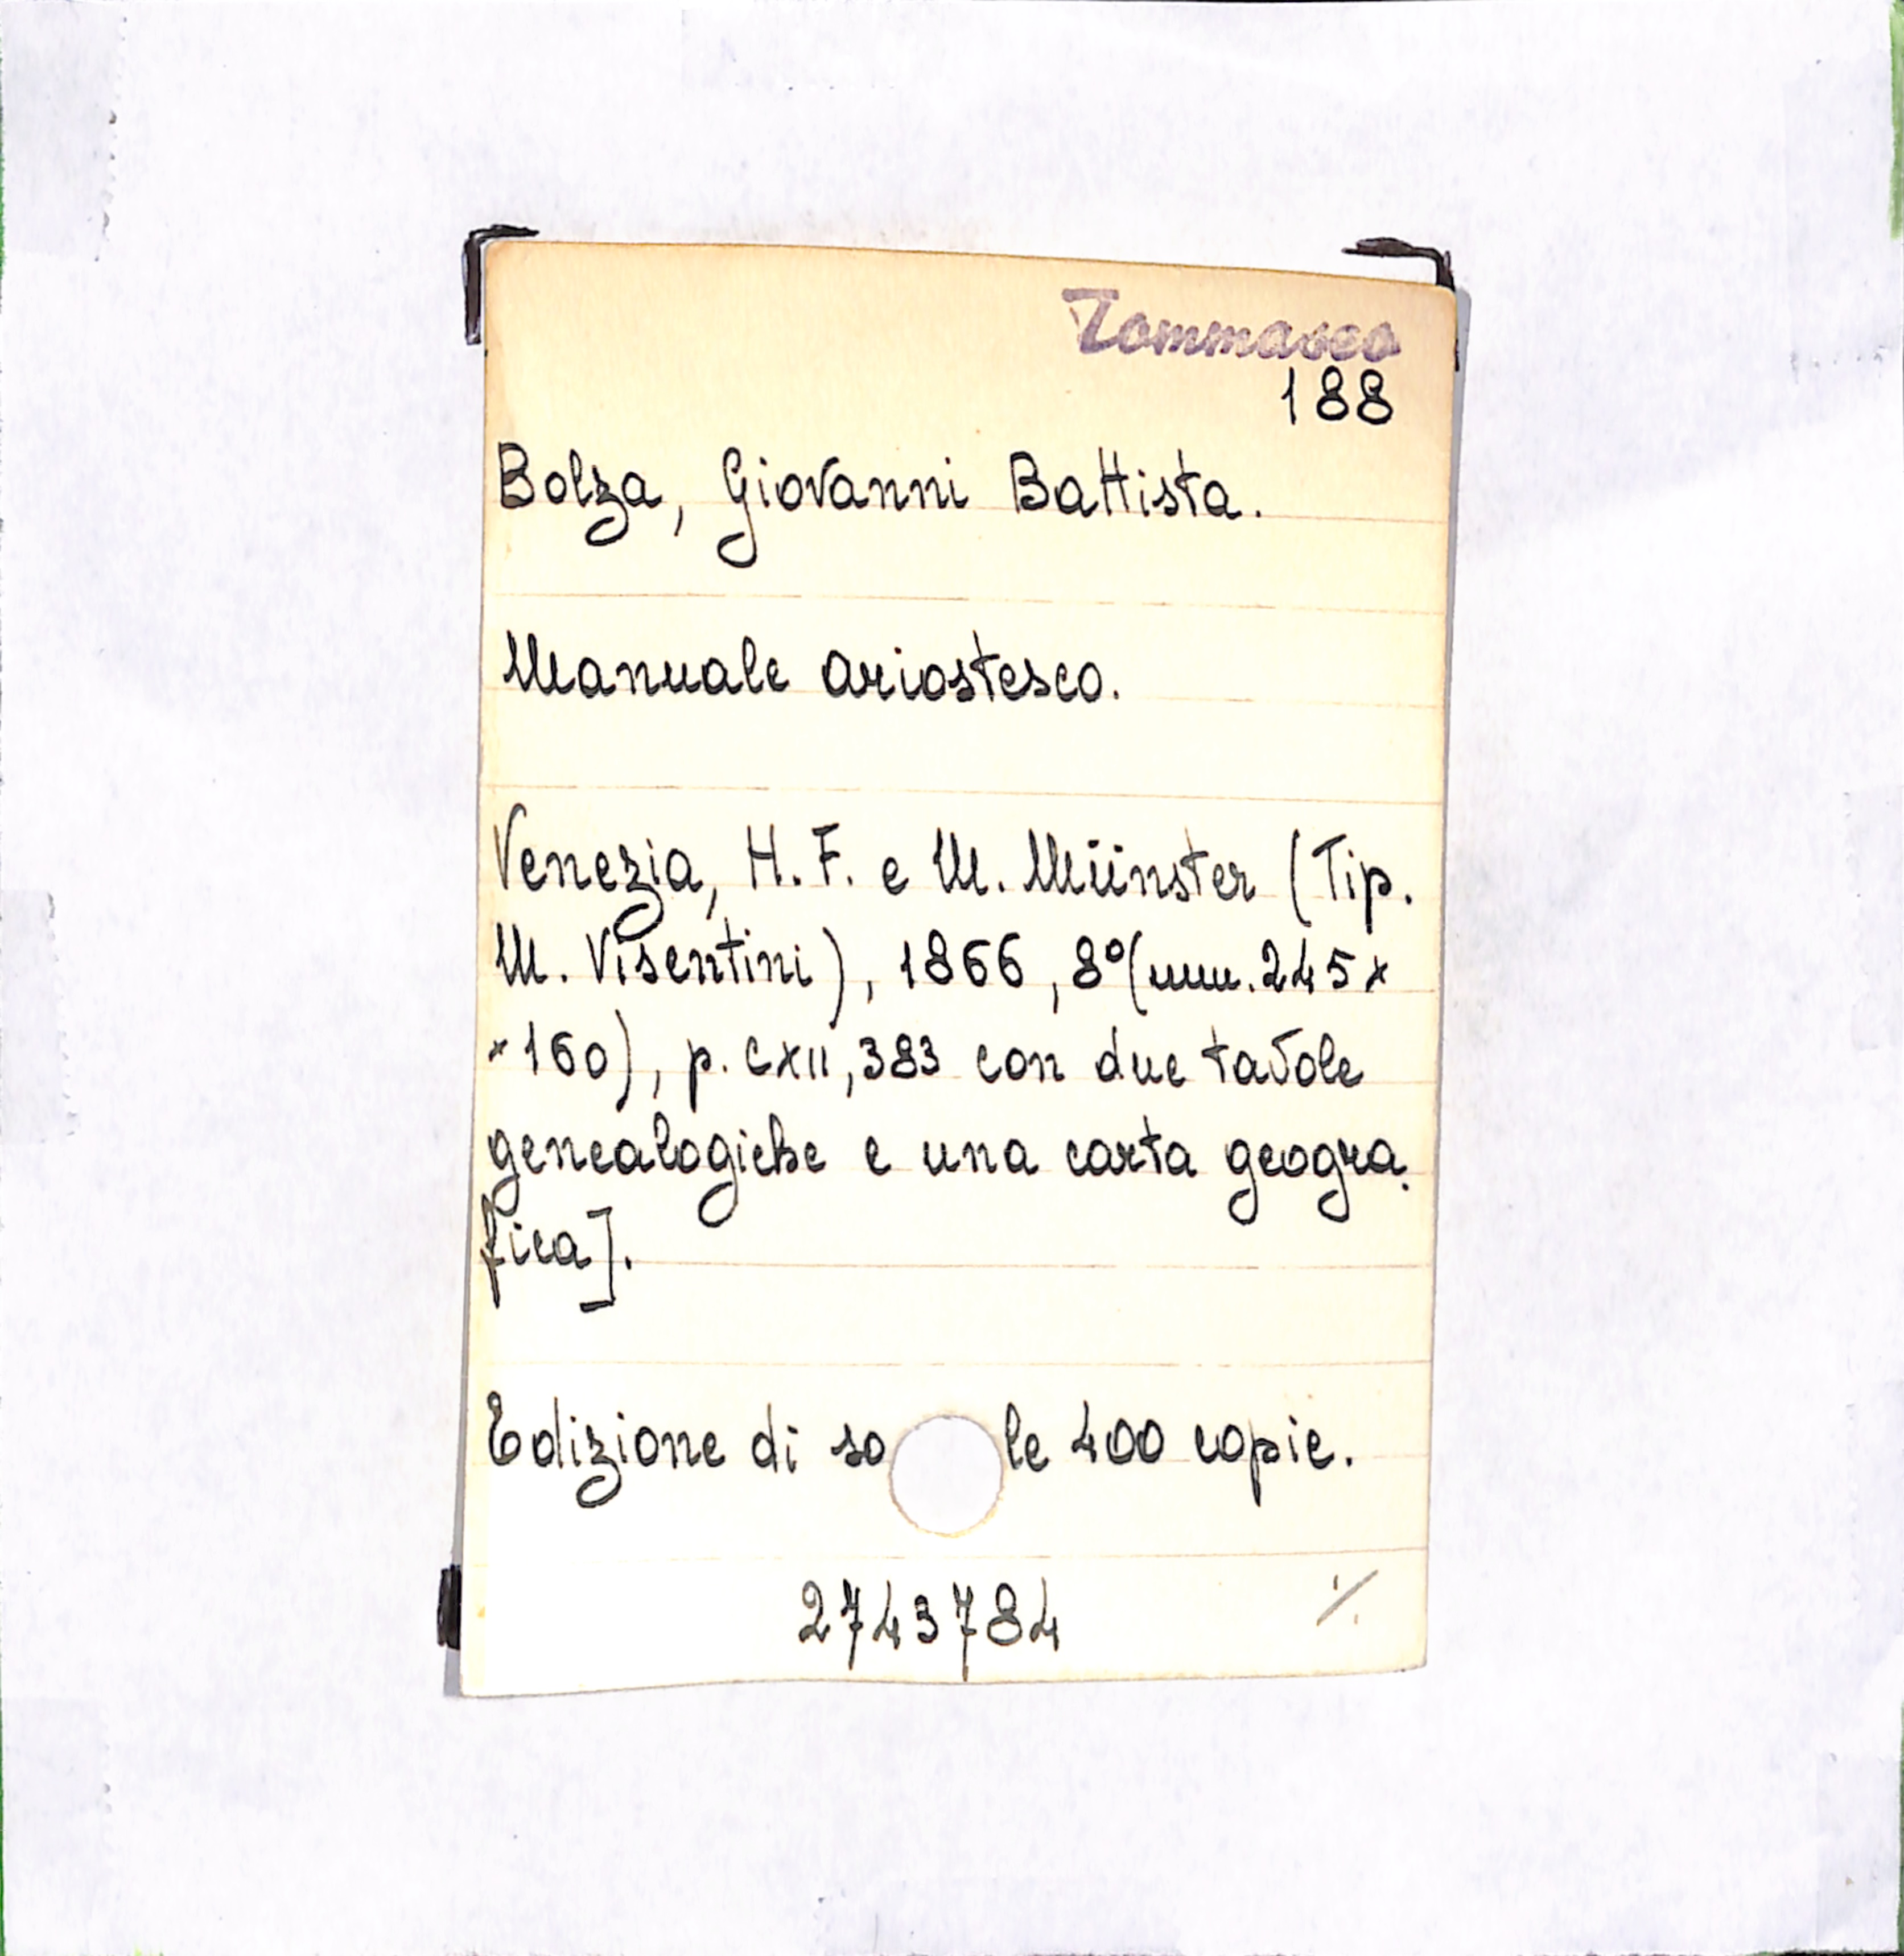 Tommaseo
188
Bolza, Giovanni Battista.
Manuale ariostesco.
Venezia, H. F. e M. Münster (Tip.
M. Visentini), 1866, 8° (mm. 245×
×160), p. CXII, 383 con due tavole
genealogiche e una carta geogra.
fica].
Edizione di so le 400 copie.
2743784 ./.